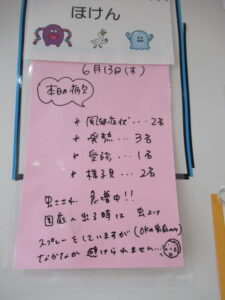 ほけん
6月13日(木)
本日の病欠
+ 風邪症状・・・2名
+ 発熱・・・3名
+ 受診・・・1名
+ 様子見・・・2名
虫さされ 急増中!!
園庭へ出る時は 虫よけ
スプレーをしていますが(OKの家庭のみ)
なかなか 避けられません…